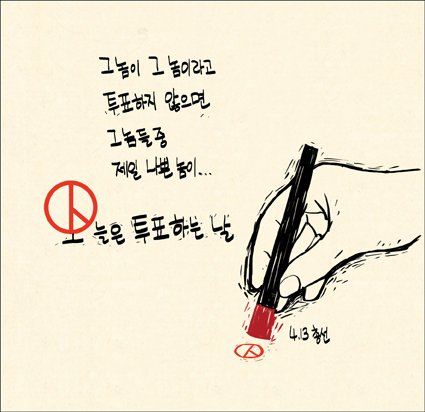 그놈이 그 놈이라고
투표하지 않으면
그놈들 중
제일 나쁜 놈이...
오늘은 투표하는 날
4.13 총선